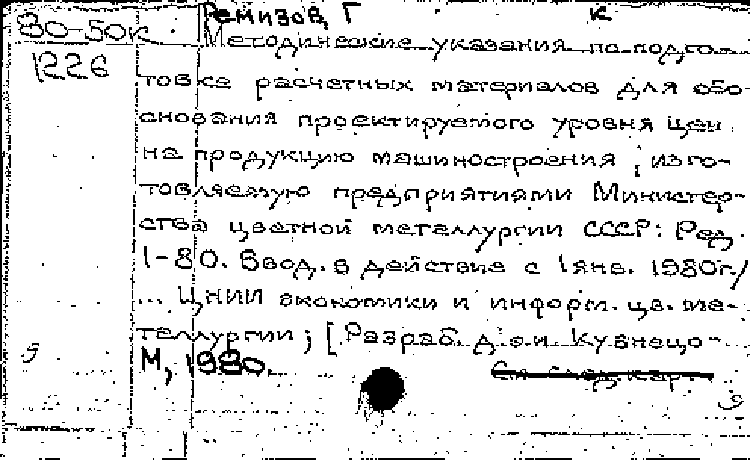 Ремизов, Г к
80-50к Методические указания по подго-
1226 товке расчетных материалов для обо-
снования проектируемого уровня цен
на продукцию машиностроения, изго-
товляемую предприятиями Министер-
ства цветной металлургии СССР: Ред.
1-80. Ввод. в действие с 1 янв. 1980г./
... ЦНИИ экономики и информ. цв. ме-
таллургии; [Разраб. д.э.н Кузнецо-
М, 1980.
См след карт.
9